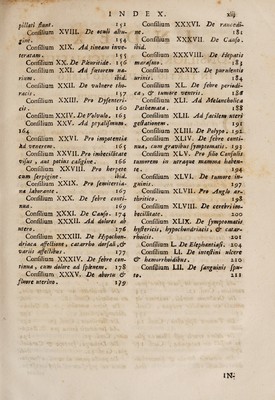 INDEX.
xiij
pillari fluxu. 151
Consilium XVIII. De oculi albugine. 154
Consilium XIX. Ad tineam inveteratam. 155
Consilium XX. De Pleuritide. 156
Consilium XXI. Ad furorem uterinum. ibid.
Consilium XXII. De vulnere thoracis. 157
Consilium XXIII. Pro Dysenterico. 160
Consilium XXIV. De Volvulo. 163
Consilium XXV. Ad ptyalismum. 164
Consilium XXVI. Pro impotentia ad venerem. 165
Consilium XXVII. Pro imbecillitate visus, aut potius caligine. 166
Consilium XXVIII. Pro herpete cum serpigine. ibid.
Consilium XXIX. Pro semitertiana laborante. 167
Consilium XXX. De febre continua. 169
Consilium XXXI. De Causo. 174
Consilium XXXII. Ad dolores ab utero. 176
Consilium XXXIII. De Hypochondriaca affectione, catarrho dorsali, & variis affectibus. 177
Consilium XXXIV. De febre continua, cum dolore ad splenem. 178
Consilium XXXV. De abortu & fluore uterino. 179
Consilium XXXVI. De raucedine. 181
Consilium XXXVII. De Causo. ibid.
Consilium XXXVIII. De Hepatis marasmo. 183
Consilium XXXIX. De purulentia urinis. 184
Consilium XL. De febre periodica, & tumore ventris. 18
Consilium XLI. Ad Melancholica Pathemata. 188
Consilium XLII. Ad facilem uteri gestationem. 191
Consilium XLIII. De Polypo. 192
Consilium XLIV. De febre continua, cum gravibus symptomatis. 193
Consilium XLV. Pro filio Consulis tumorem in utraque mamma habente. 194
Consilium XLVI. De tumore inguinis. 197
Consilium XLVII. Pro Anglo arthritico. 198
Consilium XLVIII. De cerebri imbecillitate. 200
Consilium XLIX. De symptomatis hystericis, hypochondriacis, & catarrhoicis. 201
Consilium L. De Elephantiasi. 204
Consilium LI. De intestini ulcere & hæmorrhoidibus. 210
Consilium LII. De sanguinis sputo. 211
IN-